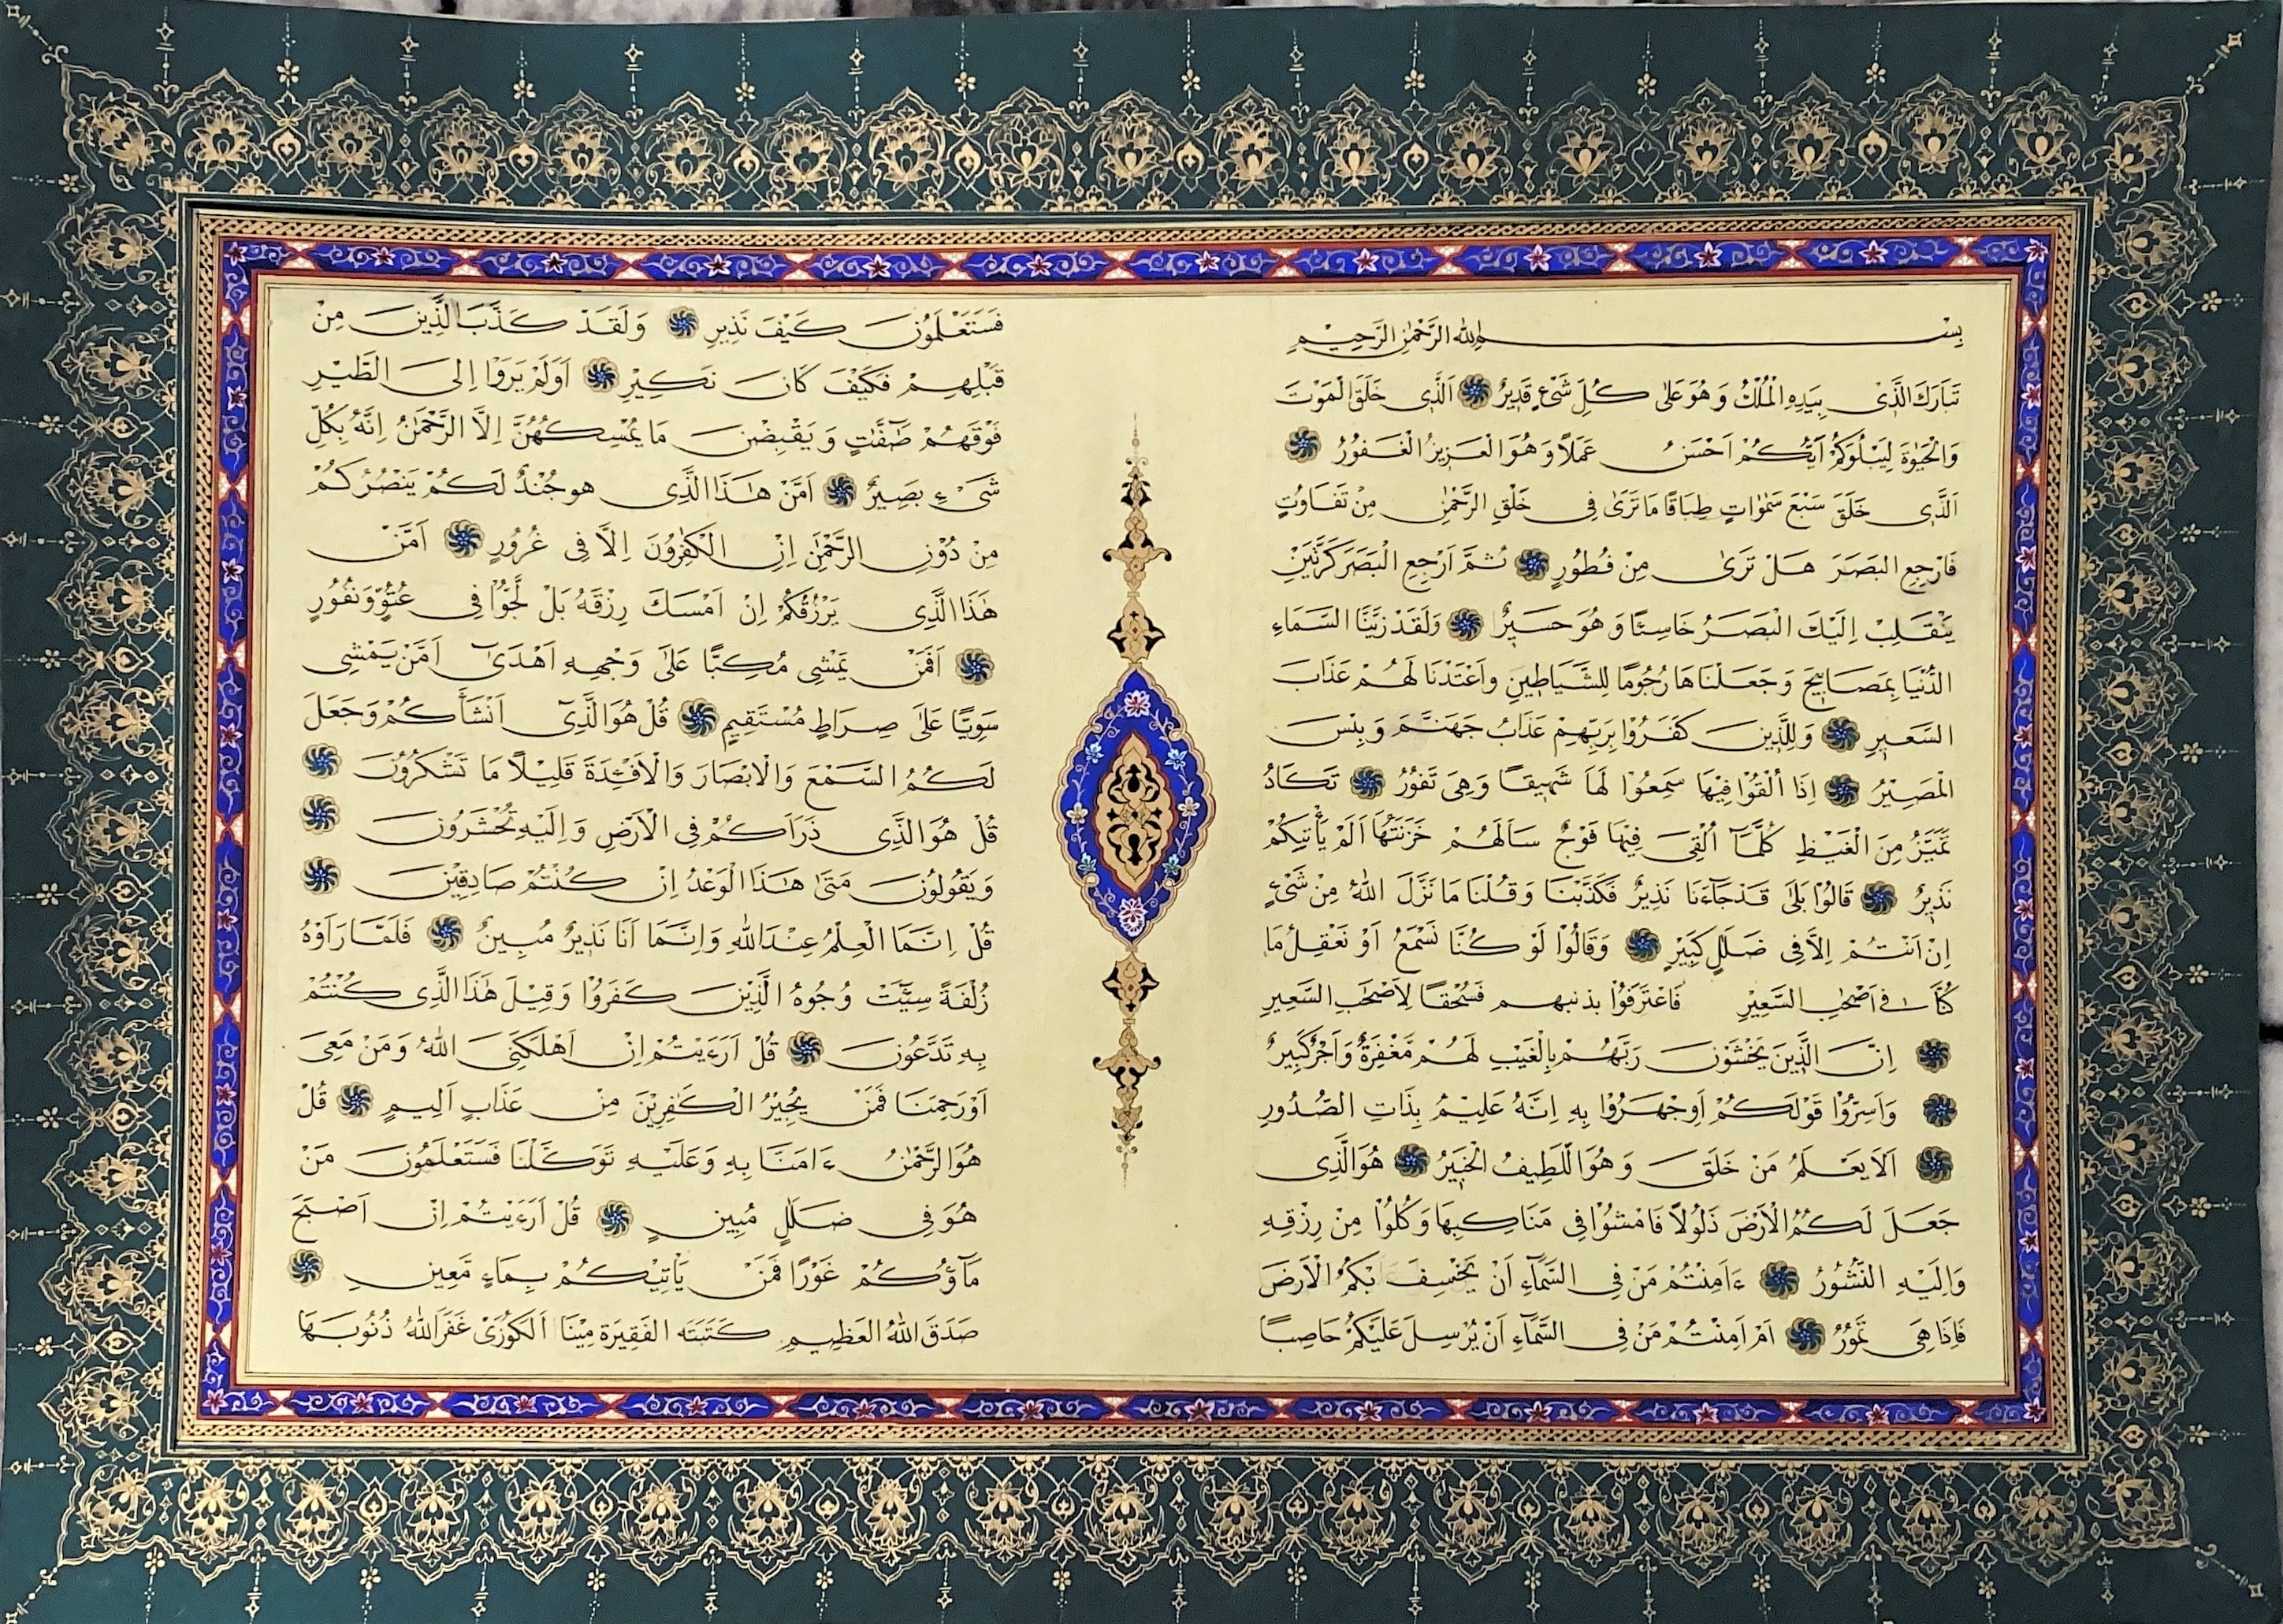 بِسْمِ اللهِ الرَّحْمٰنِ الرَّحِيمِ
تَبَارَكَ الَّذِى بِيَدِهِ الْمُلْكُ وَهُوَ عَلٰى كُلِّ شَىْءٍ قَدِيرٌ اَلَّذِى خَلَقَ الْمَوْتَ
وَالْحَيٰوةَ لِيَبْلُوَكُمْ اَيُّكُمْ اَحْسَنُ عَمَلًا وَهُوَ الْعَزِيزُ الْغَفُورُ
اَلَّذِى خَلَقَ سَبْعَ سَمٰوَاتٍ طِبَاقًا مَا تَرٰى فِى خَلْقِ الرَّحْمٰنِ مِنْ تَفَاوُتٍ
فَارْجِعِ الْبَصَرَ هَلْ تَرٰى مِنْ فُطُورٍ ثُمَّ ارْجِعِ الْبَصَرَ كَرَّتَيْنِ
يَنْقَلِبْ اِلَيْكَ الْبَصَرُ خَاسِئًا وَهُوَ حَسِيرٌ وَلَقَدْ زَيَّنَّا السَّمَاءِ
الدُّنْيَا بِمَصَابِيحَ وَجَعَلْنَاهَا رُجُومًا لِلشَّيَاطِينِ وَاَعْتَدْنَا لَهُمْ عَذَابَ
السَّعِيرِ وَلِلَّذِينَ كَفَرُوا بِرَبِّهِمْ عَذَابُ جَهَنَّمَ وَبِئْسَ
الْمَصِيْرُ اِذَا اُلْقُوْا فِيْهَا سَمِعُوْا لَهَا شَهِيقًا وَهِىَ تَفُوْرُ تَكَادُ
تَمَيَّزُ مِنَ الْغَيْظِ كُلَّمَآ اُلْقِىَ فِيْهَا فَوْجٌ سَاَلَهُمْ خَزَنَتُهَا اَلَمْ يَأْتِكُمْ
نَذِيرٌ قَالُوْا بَلٰى قَدْ جَآءَنَا نَذِيرٌ فَكَذَّبْنَا وَقُلْنَا مَا نَزَّلَ اللهُ مِنْ شَىْءٍ
اِنْ اَنْتُمْ اِلَّا فِى ضَلَلٍ كَبِيرٍ وَقَالُوْا لَوْ كُنَّا نَسْمَعُ اَوْ نَعْقِلُ مَا
كُنَّا فِى اَصْحٰبِ السَّعِيرِ فَاعْتَرَفُوْا بذنبهم فَسُحْقًا لِاَصْحٰبِ السَّعِيرِ
اِنَّ الَّذِينَ يَخْشَوْنَ رَبَّهُمْ بِالْغَيْبِ لَهُمْ مَغْفِرَةٌ وَاَجْرٌ كَبِيرٌ
وَاَسِرُّوْا قَوْلَكُمْ اَوِ جْهَرُوْا بِهِ اِنَّهُ عَلِيْمٌ بِذَاتِ الصُّدُورِ
اَلَا يَعْلَمُ مَنْ خَلَقَ وَهُوَ اللَّطِيفُ الْخَبِيْرُ هُوَ الَّذِى
جَعَلَ لَكُمُ الْاَرْضَ ذَلُولًا فَامْشُوْا فِى مَنَاكِبِهَا وَكُلُوْا مِنْ رِزْقِهِ
وَاِلَيْهِ النُّشُوْرُ ءَاَمِنْتُمْ مَنْ فِى السَّمَآءِ اَنْ يَخْسِفَ بِكُمُ الْاَرْضَ
فَاِذَا هِىَ تَمُوْرُ اَمْ اَمِنْتُمْ مَنْ فِى السَّمَآءِ اَنْ يُرْسِلَ عَلَيْكُمْ حَاصِبًا
فَسَتَعْلَمُوْنَ كَيْفَ نَذِيرِ وَلَقَدْ كَذَّبَ الَّذِينَ مِنْ
قَبْلِهِمْ فَكَيْفَ كَانَ نَكِيرِ اَوَلَمْ يَرَوْا اِلَى الطَّيْرِ
فَوْقَهُمْ صَٓفّٰتٍ وَيَقْبِضْنَ مَا يُمْسِكُهُنَّ اِلَّا الرَّحْمٰنُ اِنَّهُ بِكُلِّ
شَىْءٍ بَصِيرٌ اَمَّنْ هٰذَا الَّذِى هو جُنْدٌ لَكُمْ يَنْصُرُكُمْ
مِنْ دُوْنِ الرَّحْمٰنِ اِنِ الْكٰفِرُونَ اِلَّا فِى غُرُورٍ اَمَّنْ
هٰذَا الَّذِى يَرْزُقُكُمْ اِنْ اَمْسَكَ رِزْقَهُ بَلْ لَجُّوْا فِى عُتُوٍّ وَنُفُورٍ
اَفَمَنْ يَمْشِى مُكِبًّا عَلٰى وَجْهِهِ اَهْدٰىٓ اَمَّنْ يَمْشِى
سَوِيًّا عَلٰى صِرَاطٍ مُسْتَقِيمٍ قُلْ هُوَ الَّذِىٓ اَنْشَأَكُمْ وَجَعَلَ
لَكُمُ السَّمْعَ وَالْاَبْصَارَ وَالْاَفْئِدَةَ قَلِيْلًا مَا تَشْكُرُوْنَ
قُلْ هُوَ الَّذِى ذَرَاَكُمْ فِى الْاَرْضِ وَاِلَيْهِ تُحْشَرُوْنَ
وَيَقُولُوْنَ مَتٰى هٰذَا الْوَعْدُ اِنْ كُنْتُمْ صَادِقِيْنَ
قُلْ اِنَّمَا الْعِلْمُ عِنْدَ اللهِ وَاِنَّمَا اَنَا نَذِيرٌ مُبِينٌ فَلَمَّا رَاَوْهُ
زُلْفَةً سِيٓئَتْ وُجُوهُ الَّذِيْنَ كَفَرُوْا وَقِيلَ هٰذَا الَّذِى كُنْتُمْ
بِهِ تَدَّعُوْنَ قُلْ اَرَءَيْتُمْ اِنْ اَهْلَكَنِىَ اللهُ وَمَنْ مَعِىَ
اَوْ رَحِمَنَا فَمَنْ يُجِيْرُ الْكٰفِرِيْنَ مِنْ عَذَابٍ اَلِيمٍ قُلْ
هُوَ الرَّحْمٰنُ ءَامَنَّا بِهِ وَعَلَيْهِ تَوَكَّلْنَا فَسَتَعْلَمُوْنَ مَنْ
هُوَ فِى ضَلَلٍ مُبِينٍ قُلْ اَرَءَيْتُمْ اِنْ اَصْبَحَ
مَآؤُكُمْ غَوْرًا فَمَنْ يَاْتِيْكُمْ بِمَاءٍ مَعِينٍ
صَدَقَ اللهُ العَظِيمِ كَتَبَتَه الفَقِيرَة مِيْنَا اَلكَوْزَىْ غَفَرَ اللهُ ذُنُوْبَهَا